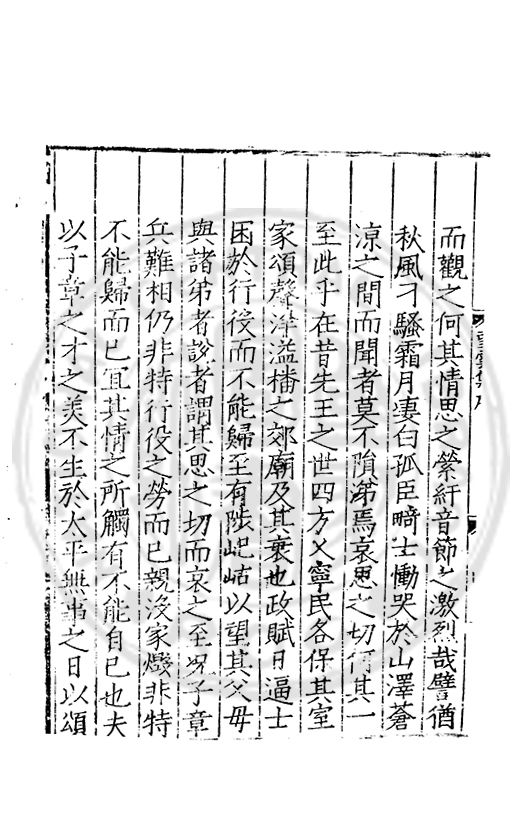 而觀之何其情思之縈紆音節之激烈哉譬猶
秋風刁騷霜月凄白孤臣畸士慟哭於山澤蒼
凉之間而聞者莫不隕涕焉哀思之切何其一
至此乎在昔先王之世四方乂寧民各保其室
家頌聲洋溢播之郊廟及其衰也政賦日逼士
困於行役而不能歸至有陟屺岵以望其父毋
與諸弟者說者謂其思之切而哀之至况子章
兵難相仍非特行役之勞而已親沒家燬非特
不能歸而已宜其情之所觸有不能自已也夫
以子章之才之美不生於太平無事之日以頌